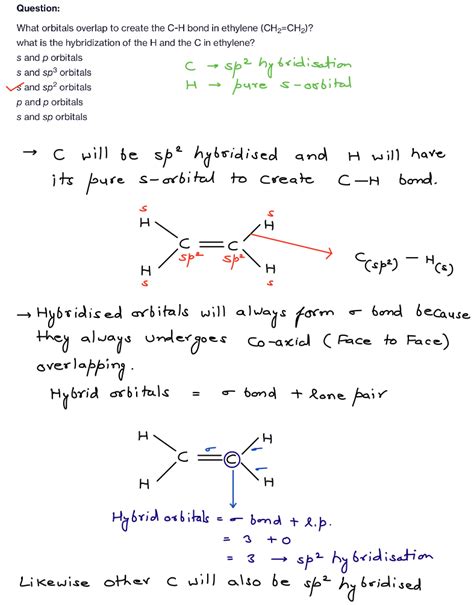 Question:
What orbitals overlap to create the C-H bond in ethylene (CH₂=CH₂)?
what is the hybridization of the H and the C in ethylene?
s and p orbitals
s and sp³ orbitals
s and sp² orbitals
p and p orbitals
s and sp orbitals
C → sp² hybridisation
H → pure s-orbital
→ C will be sp² hybridised and H will have
its pure s-orbital to create C-H bond.
s s
H H
C = C
sp² sp²
H H
s s
C(sp²) - H(s)
→ Hybridised orbitals will always form σ bond because
they always undergoes co-axid (Face to Face)
overlapping.
Hybrid orbitals = σ bond + lone pair
H H
σ σ
C = C
σ
H H
Hybrid orbitals = σ bond + l.p.
= 3 + 0
= 3 → sp² hybridisation
Likewise other C will also be sp² hybridised